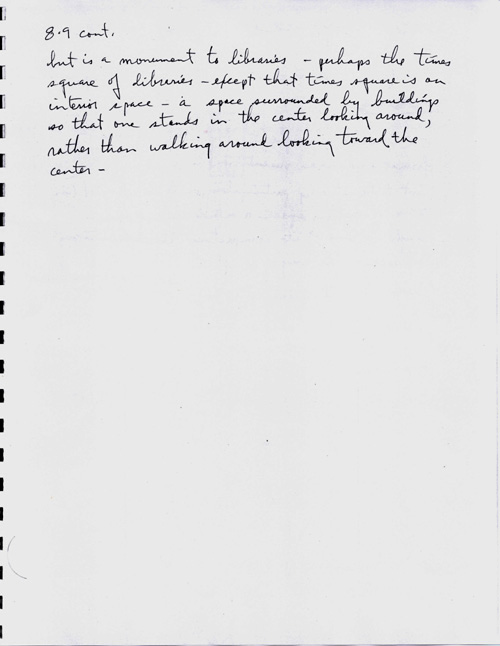 8.9 cont.
but is a monument to libraries - perhaps the times
square of libraries - except that times square is an
interior space - a space surrounded by buildings
so that one stands in the center looking around,
rather than walking around looking toward the
center -